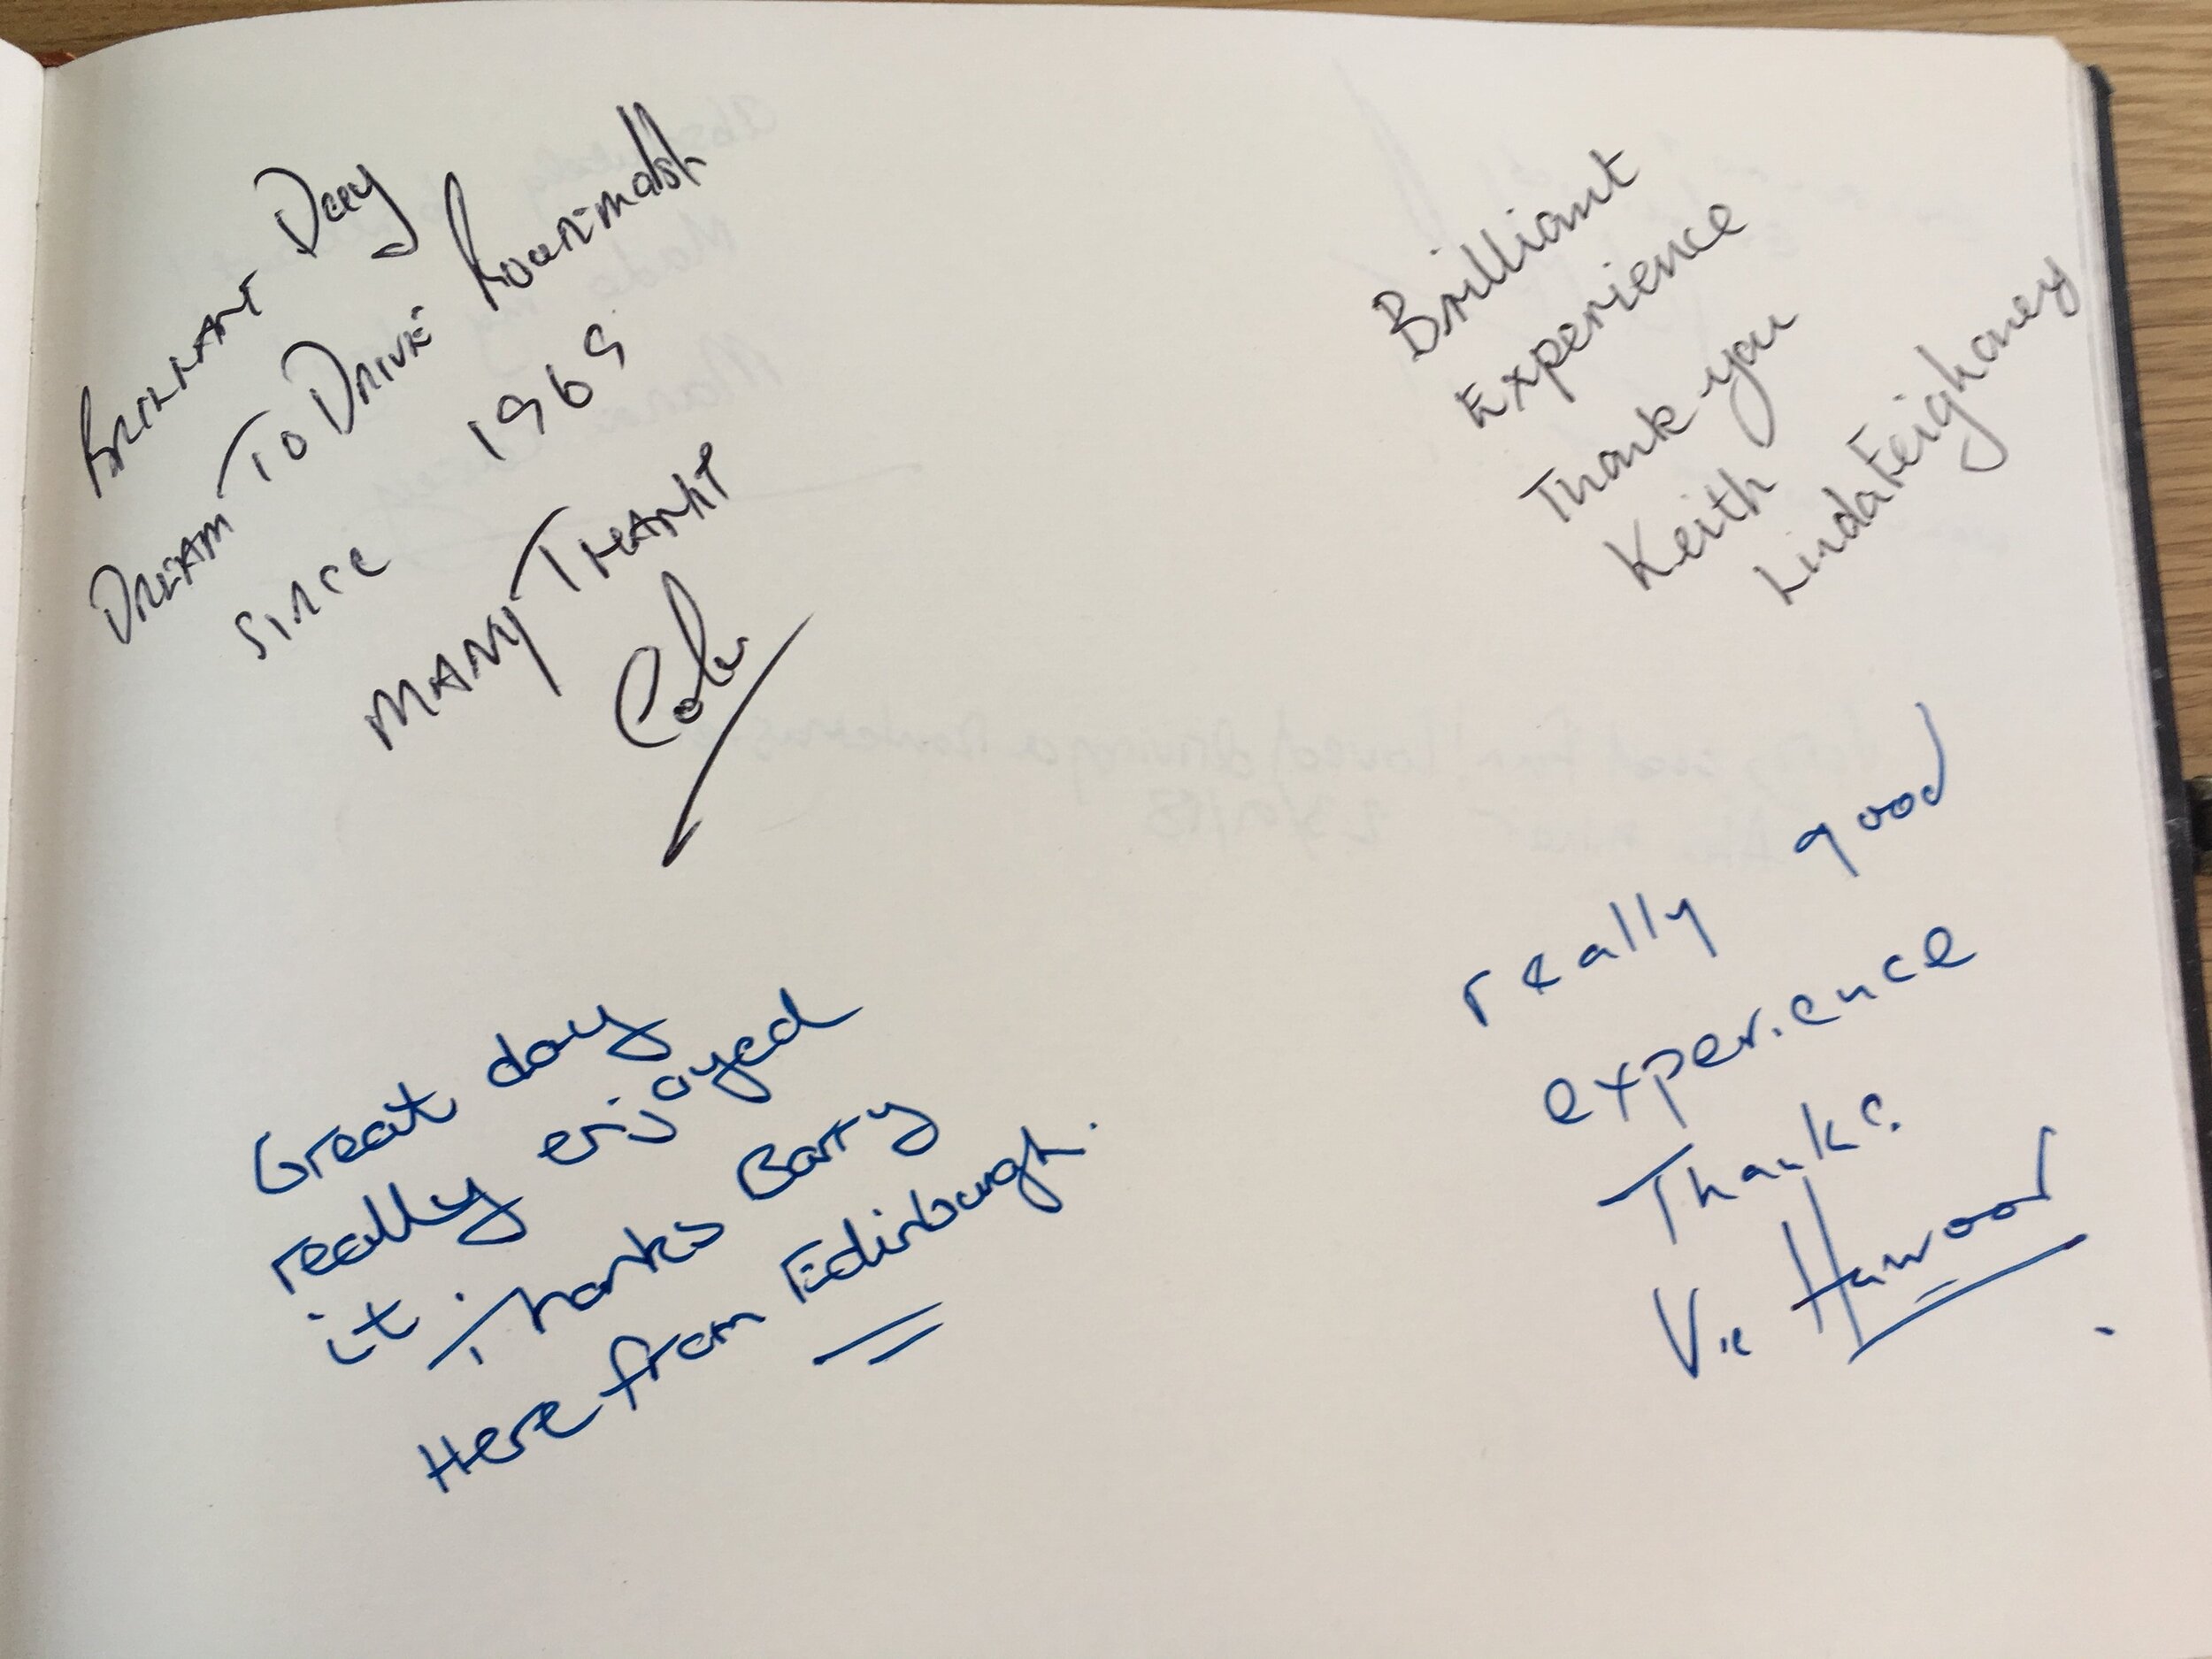 BRILLIANT Day
DREAM TO DRIVE Routemaster
SINCE 1969
MANY THANKS
Colin
Brilliant
Experience
Thank you
Keith
Linda Feighoney
Great day
really enjoyed
it Thanks Barry
Here from Edinburgh.
really good
experience
Thanks
Vic Harwood